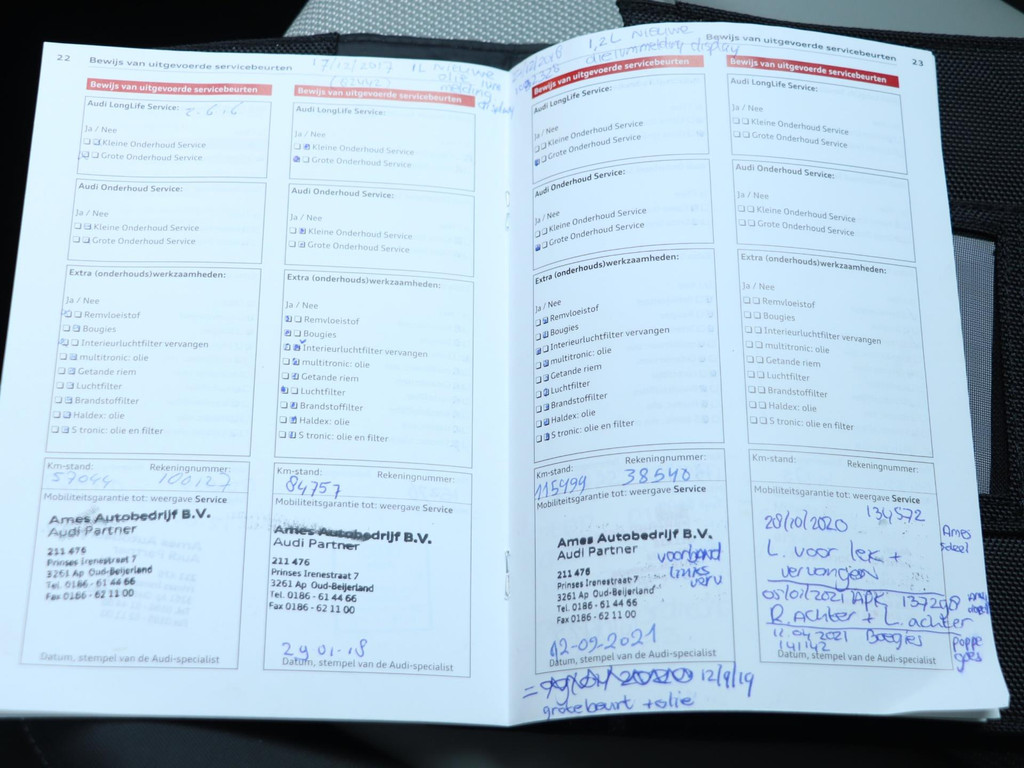 22
Bewijs van uitgevoerde servicebeurten
17/12/2017 1L NIEUWE
olie
Bewijs van uitgevoerde servicebeurten
Audi LongLife Service:
2-6-16
Ja / Nee
Kleine Onderhoud Service
Grote Onderhoud Service
Audi Onderhoud Service:
Ja / Nee
Kleine Onderhoud Service
Grote Onderhoud Service
Extra (onderhouds)werkzaamheden:
Ja / Nee
Remvloeistof
Bougies
Interieurluchtfilter vervangen
multitronic: olie
Getande riem
Luchtfilter
Brandstoffilter
Haldex: olie
S tronic: olie en filter
Km-stand:
Rekeningnummer:
57044
100127
Mobiliteitsgarantie tot: weergave Service
Ames Autobedrijf B.V.
Audi Partner
211 476
Prinses Irenestraat 7
3261 Ap Oud-Beijerland
Tel. 0186 - 61 44 66
Fax 0186 - 62 11 00
Datum, stempel van de Audi-specialist
Bewijs van uitgevoerde servicebeurten
display
Audi LongLife Service:
Ja / Nee
Kleine Onderhoud Service
Grote Onderhoud Service
Audi Onderhoud Service:
Ja / Nee
Kleine Onderhoud Service
Grote Onderhoud Service
Extra (onderhouds)werkzaamheden:
Ja / Nee
Remvloeistof
Bougies
Interieurluchtfilter vervangen
multitronic: olie
Getande riem
Luchtfilter
Brandstoffilter
Haldex: olie
S tronic: olie en filter
Km-stand:
Rekeningnummer:
84757
Mobiliteitsgarantie tot: weergave Service
Ames Autobedrijf B.V.
Audi Partner
211 476
Prinses Irenestraat 7
3261 Ap Oud-Beijerland
Tel. 0186 - 61 44 66
Fax 0186 - 62 11 00
29 01-18
Datum, stempel van de Audi-specialist
1,2L NIEUWE
display
Bewijs van uitgevoerde servicebeurten
23
Bewijs van uitgevoerde servicebeurten
Audi LongLife Service:
Ja / Nee
Kleine Onderhoud Service
Grote Onderhoud Service
Audi Onderhoud Service:
Ja / Nee
Kleine Onderhoud Service
Grote Onderhoud Service
Extra (onderhouds)werkzaamheden:
Ja / Nee
Remvloeistof
Bougies
Interieurluchtfilter vervangen
multitronic: olie
Getande riem
Luchtfilter
Brandstoffilter
Haldex: olie
S tronic: olie en filter
Km-stand:
Rekeningnummer:
115499
38540
Mobiliteitsgarantie tot: weergave Service
Ames Autobedrijf B.V.
Audi Partner
211 476
Prinses Irenestraat 7
3261 Ap Oud-Beijerland
Tel. 0186 - 61 44 66
Fax 0186 - 62 11 00
voorband
links
verv
12-09-2021
Datum, stempel van de Audi-specialist
= 12/9/19
grote beurt + olie
Bewijs van uitgevoerde servicebeurten
Audi LongLife Service:
Ja / Nee
Kleine Onderhoud Service
Grote Onderhoud Service
Audi Onderhoud Service:
Ja / Nee
Kleine Onderhoud Service
Grote Onderhoud Service
Extra (onderhouds)werkzaamheden:
Ja / Nee
Remvloeistof
Bougies
Interieurluchtfilter vervangen
multitronic: olie
Getande riem
Luchtfilter
Brandstoffilter
Haldex: olie
S tronic: olie en filter
Km-stand:
Rekeningnummer:
Mobiliteitsgarantie tot: weergave Service
28/10/2020 134572
Ames
L. voor lek +
vervangen
05/07/2021 APK 137298
R. achter + L. achter
11.04.2021 Boegies
141142
poppe
goes
Datum, stempel van de Audi-specialist